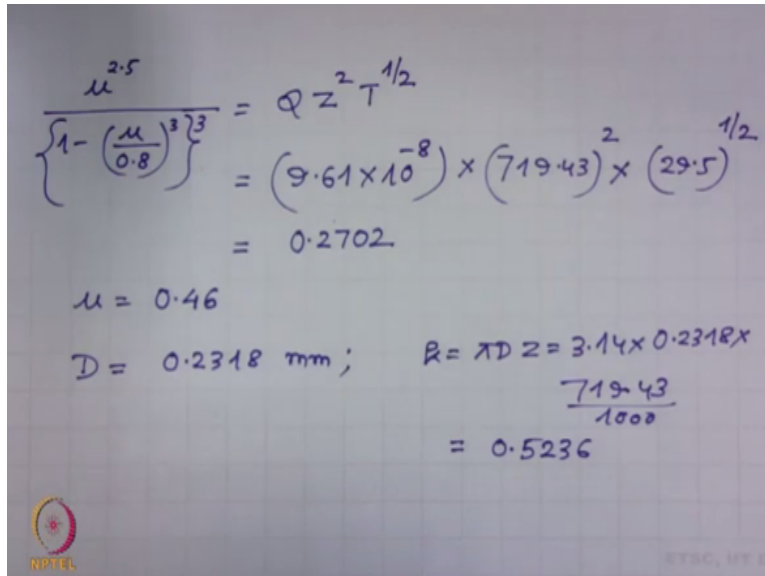 μ^2.5 / {1 - (μ/0.8)^3}^3 = Q Z^2 T^1/2
= (9.61 × 10^-8) × (719.43)^2 × (29.5)^1/2
= 0.2702
μ = 0.46
D = 0.2318 mm; k = πDZ = 3.14 × 0.2318 ×
719.43 / 1000
= 0.5236
NPTEL